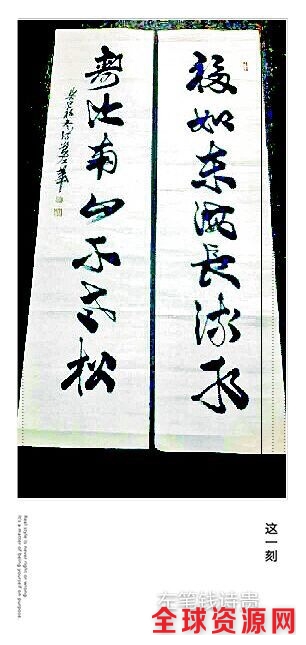 福如东海长流水
寿比南山不老松
这一刻
Real style is never right or wrong
It's a matter of being yourself on purpose
在笔钱诗贵
全球资源网